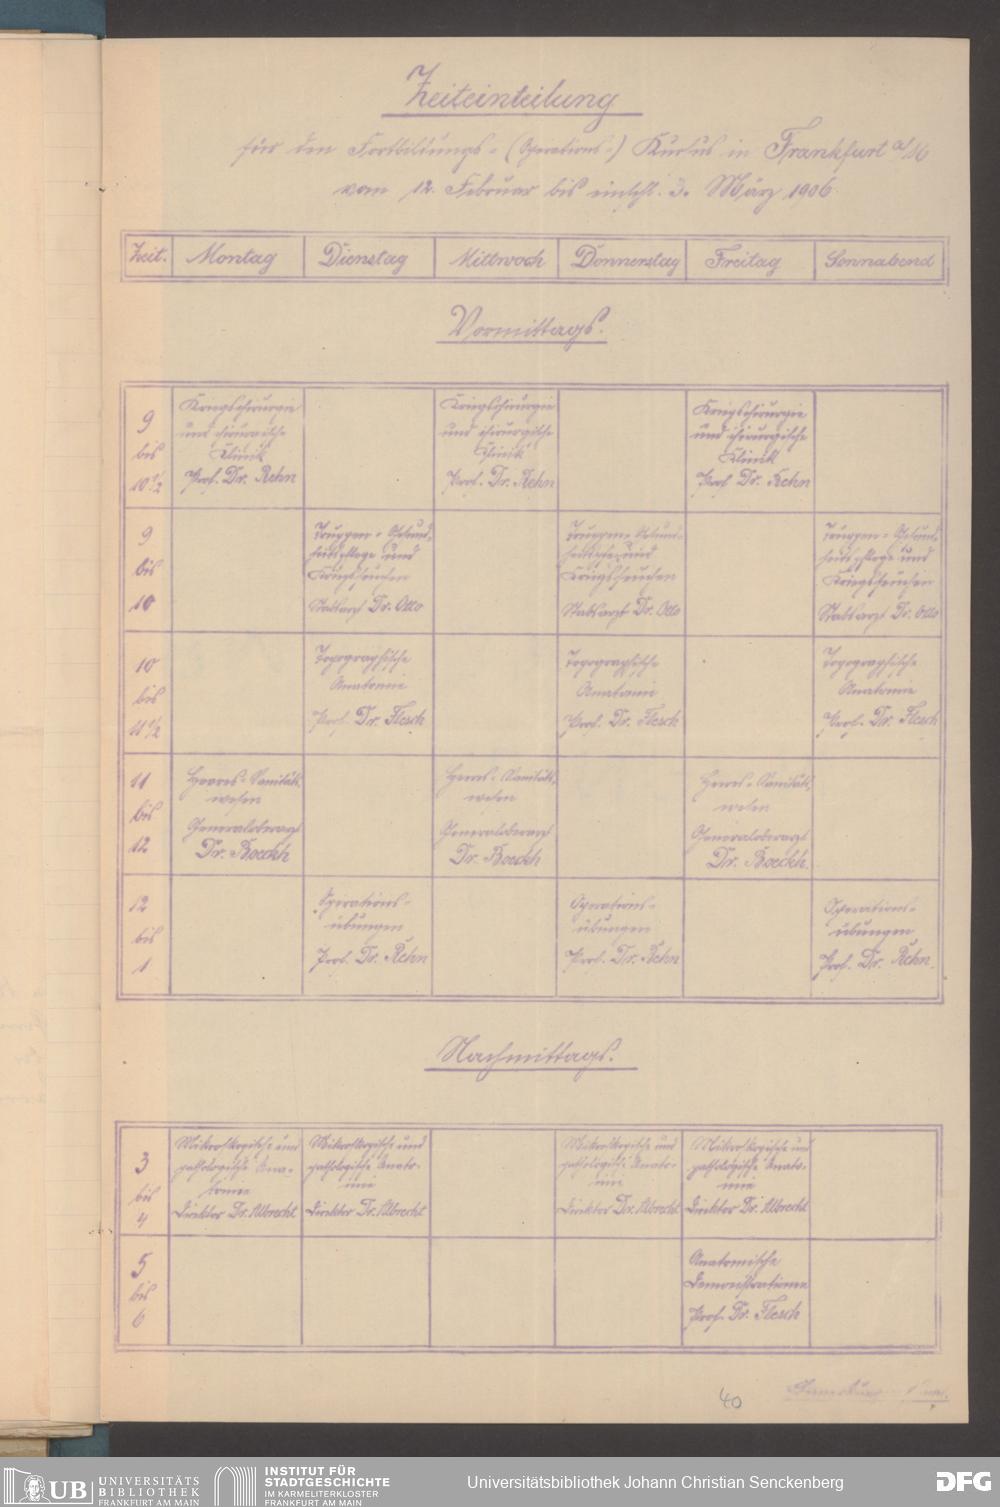 Zeiteinteilung
für den Fortbildungs- (Operations-) Kursus in Frankfurt a/M
vom 12. Februar bis einschl. 3. März 1906.
Zeit. Montag Dienstag Mittwoch Donnerstag Freitag Sonnabend
Vormittags.
9 bis 10 1/2
Kriegschirurgie
und chirurgische
Klinik
Prof. Dr. Rehn
Kriegschirurgie
und chirurgische
Klinik
Prof. Dr. Rehn
Kriegschirurgie
und chirurgische
Klinik
Prof. Dr. Rehn
9 bis 10
Truppen-Gesund-
heitspflege und
Kriegsseuchen
Stabsarzt Dr. Otto
Truppen-Gesund-
heitspflege und
Kriegsseuchen
Stabsarzt Dr. Otto
Truppen-Gesund-
heitspflege und
Kriegsseuchen
Stabsarzt Dr. Otto
10 bis 11 1/2
Topographische
Anatomie
Prof. Dr. Flesch
Topographische
Anatomie
Prof. Dr. Flesch
Topographische
Anatomie
Prof. Dr. Flesch
11 bis 12
Heeres-Sanitäts-
wesen
Generaloberarzt
Dr. Boeckh
Heeres-Sanitäts-
wesen
Generaloberarzt
Dr. Boeckh
Heeres-Sanitäts-
wesen
Generaloberarzt
Dr. Boeckh.
12 bis 1
Operations-
übungen
Prof. Dr. Rehn
Operations-
übungen
Prof. Dr. Rehn
Operations-
übungen
Prof. Dr. Rehn.
Nachmittags.
3 bis 4
Mikroskopische und
pathologische Ana-
tomie
Direktor Dr. Albrecht
Mikroskopische und
pathologische Anato-
mie
Direktor Dr. Albrecht
Mikroskopische und
pathologische Anato-
mie
Direktor Dr. Albrecht
Mikroskopische und
pathologische Anato-
mie
Direktor Dr. Albrecht
5 bis 6
Anatomische
Demonstrationen
Prof. Dr. Flesch
40
UB UNIVERSITÄTS
BIBLIOTHEK
FRANKFURT AM MAIN
INSTITUT FÜR
STADTGESCHICHTE
IM KARMELITERKLOSTER
FRANKFURT AM MAIN
Universitätsbibliothek Johann Christian Senckenberg
DFG